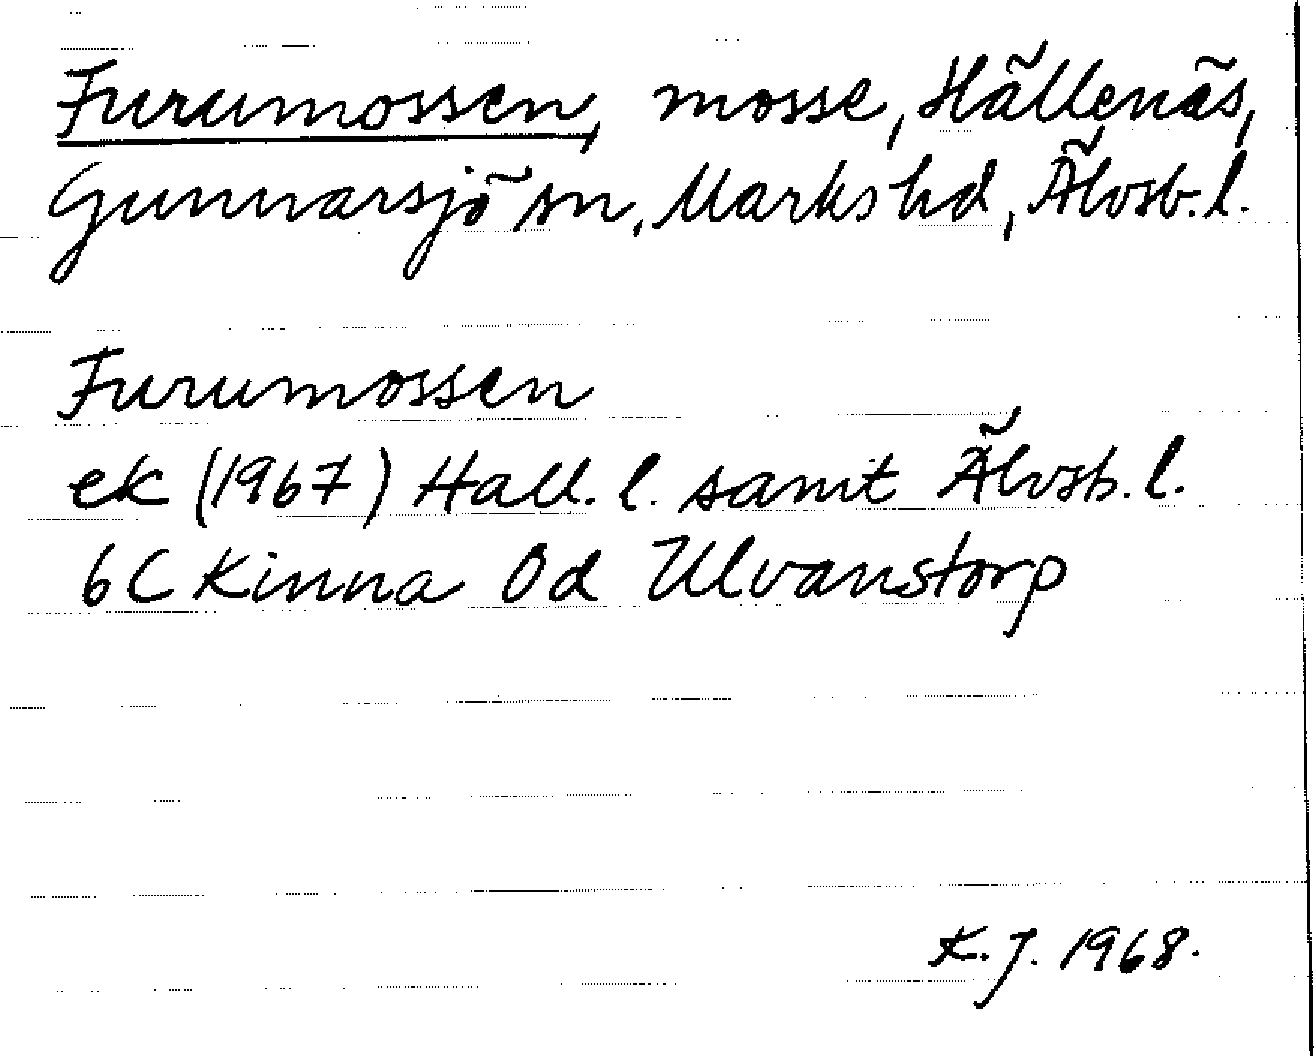 Furumossen, mosse, Hällenäs,
Gunnarsjö sn, Marks hd, Älvsb. l.
Furumossen
ek (1967) Hall. l. samt Älvsb. l.
6C Kinna 0d Ulvanstorp
K.J. 1968.